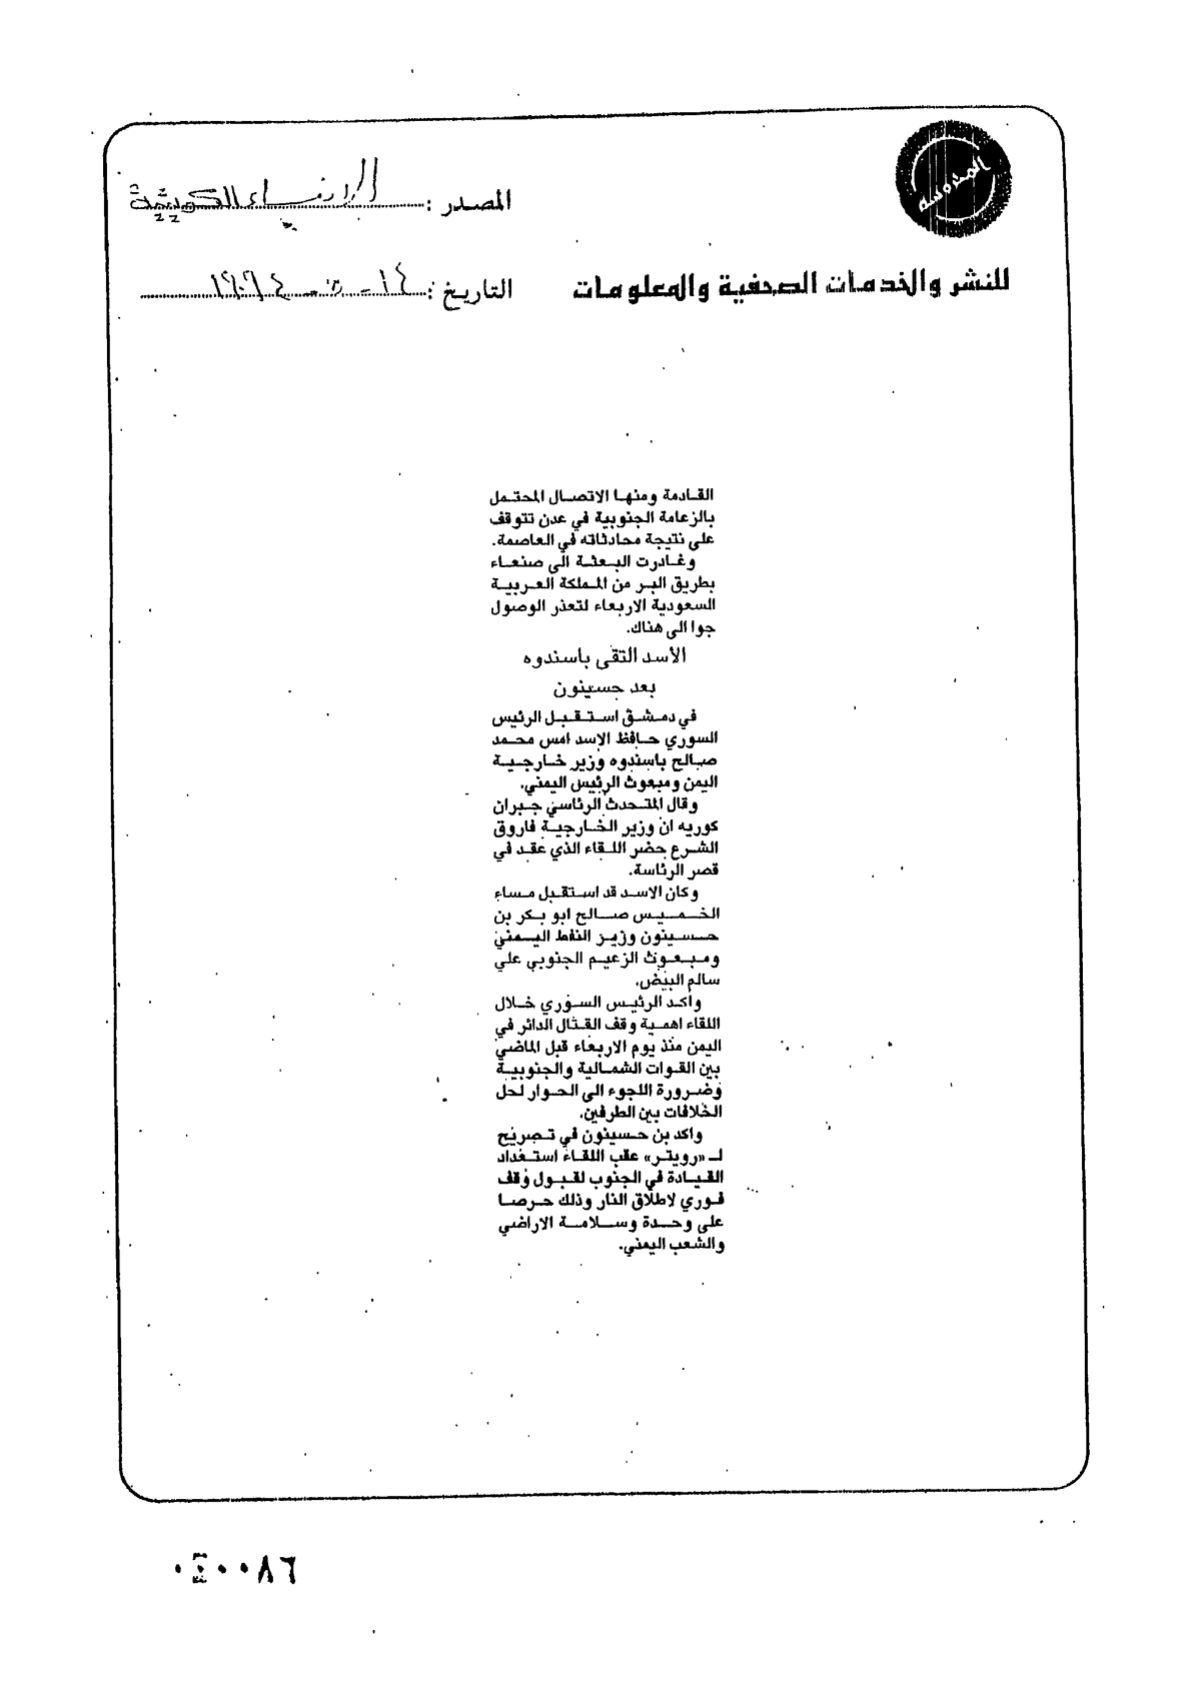 المصدر : الانباء الكويتية
للنشر والخدمات الصحفية والمعلومات
التاريخ : ١٤ - ٥ - ١٩٩٤
القادمة ومنها الاتصال المحتمل
بالزعامة الجنوبية في عدن تتوقف
على نتيجة محادثاته في العاصمة.
وغادرت البعثة الى صنعاء
بطريق البر من المملكة العربية
السعودية الاربعاء لتعذر الوصول
جوا الى هناك.
الأسد التقى باسندوه
بعد حسينون
في دمشق استقبل الرئيس
السوري حافظ الاسد امس محمد
صالح باسندوه وزير خارجية
اليمن ومبعوث الرئيس اليمني.
وقال المتحدث الرئاسي جبران
كوريه ان وزير الخارجية فاروق
الشرع حضر اللقاء الذي عقد في
قصر الرئاسة.
وكان الاسد قد استقبل مساء
الخميس صالح ابو بكر بن
حسينون وزير النفط اليمني
ومبعوث الزعيم الجنوبي علي
سالم البيض.
واكد الرئيس السوري خلال
اللقاء اهمية وقف القتال الدائر في
اليمن منذ يوم الاربعاء قبل الماضي
بين القوات الشمالية والجنوبية
وضرورة اللجوء الى الحوار لحل
الخلافات بين الطرفين.
واكد بن حسينون في تصريح
لـ «رويتر» عقب اللقاء استعداد
القيادة في الجنوب لقبول وقف
فوري لاطلاق النار وذلك حرصا
على وحدة وسلامة الاراضي
والشعب اليمني.